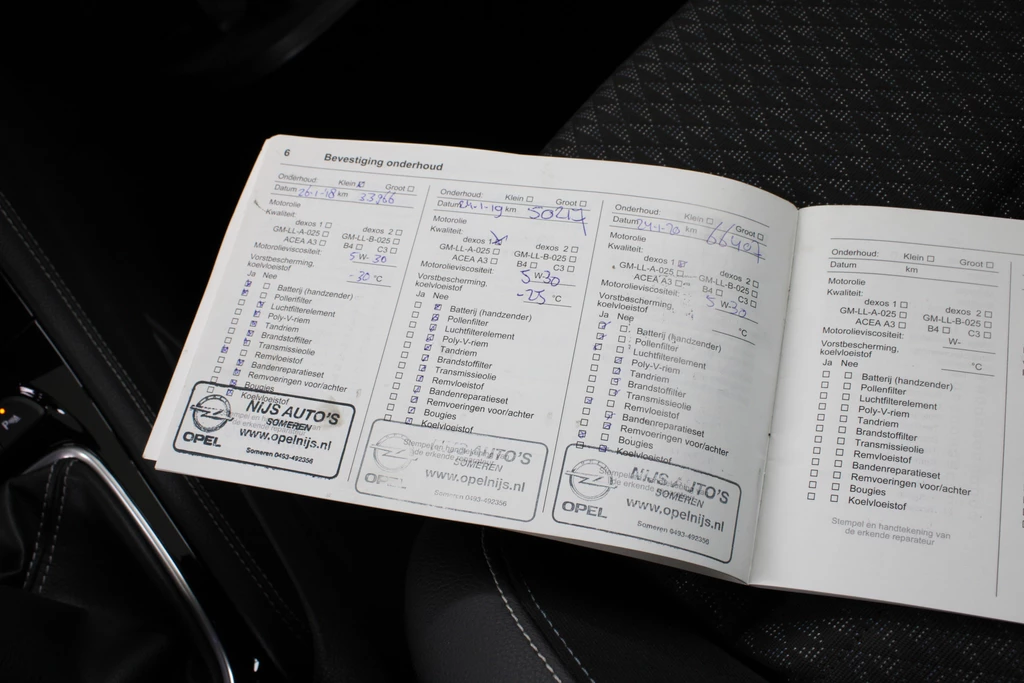 6 Bevestiging onderhoud
Onderhoud: Klein Groot
Datum 26-1-18 km 33966
Motorolie
Kwaliteit:
dexos 1 dexos 2
GM-LL-A-025 GM-LL-B-025
ACEA A3 B4 C3
Motorolieviscositeit: 5 W- 30
Vorstbescherming,
koelvloeistof -30 °C
Ja Nee
Batterij (handzender)
Pollenfilter
Luchtfilterelement
Poly-V-riem
Tandriem
Brandstoffilter
Transmissieolie
Remvloeistof
Bandenreparatieset
Remvoeringen voor/achter
Bougies
Koelvloeistof
Stempel en handtekening van
de erkende reparateur
OPEL
NIJS AUTO'S
SOMEREN
www.opelnijs.nl
Someren 0493-492356
Onderhoud: Klein Groot
Datum 24-1-19 km 50217
Motorolie
Kwaliteit:
dexos 1 dexos 2
GM-LL-A-025 GM-LL-B-025
ACEA A3 B4 C3
Motorolieviscositeit: 5 W-30
Vorstbescherming,
koelvloeistof -25 °C
Ja Nee
Batterij (handzender)
Pollenfilter
Luchtfilterelement
Poly-V-riem
Tandriem
Brandstoffilter
Transmissieolie
Remvloeistof
Bandenreparatieset
Remvoeringen voor/achter
Bougies
Koelvloeistof
Stempel en handtekening van
de erkende reparateur
OPEL
NIJS AUTO'S
SOMEREN
www.opelnijs.nl
Someren 0493-492356
Onderhoud: Klein Groot
Datum 24-1-20 km 66407
Motorolie
Kwaliteit:
dexos 1 dexos 2
GM-LL-A-025 GM-LL-B-025
ACEA A3 B4 C3
Motorolieviscositeit: 5 W-30
Vorstbescherming,
koelvloeistof °C
Ja Nee
Batterij (handzender)
Pollenfilter
Luchtfilterelement
Poly-V-riem
Tandriem
Brandstoffilter
Transmissieolie
Remvloeistof
Bandenreparatieset
Remvoeringen voor/achter
Bougies
Koelvloeistof
Stempel en handtekening van
de erkende reparateur
OPEL
NIJS AUTO'S
SOMEREN
www.opelnijs.nl
Someren 0493-492356
Onderhoud: Klein Groot
Datum km
Motorolie
Kwaliteit:
dexos 1 dexos 2
GM-LL-A-025 GM-LL-B-025
ACEA A3 B4 C3
Motorolieviscositeit: W-
Vorstbescherming,
koelvloeistof °C
Ja Nee
Batterij (handzender)
Pollenfilter
Luchtfilterelement
Poly-V-riem
Tandriem
Brandstoffilter
Transmissieolie
Remvloeistof
Bandenreparatieset
Remvoeringen voor/achter
Bougies
Koelvloeistof
Stempel en handtekening van
de erkende reparateur